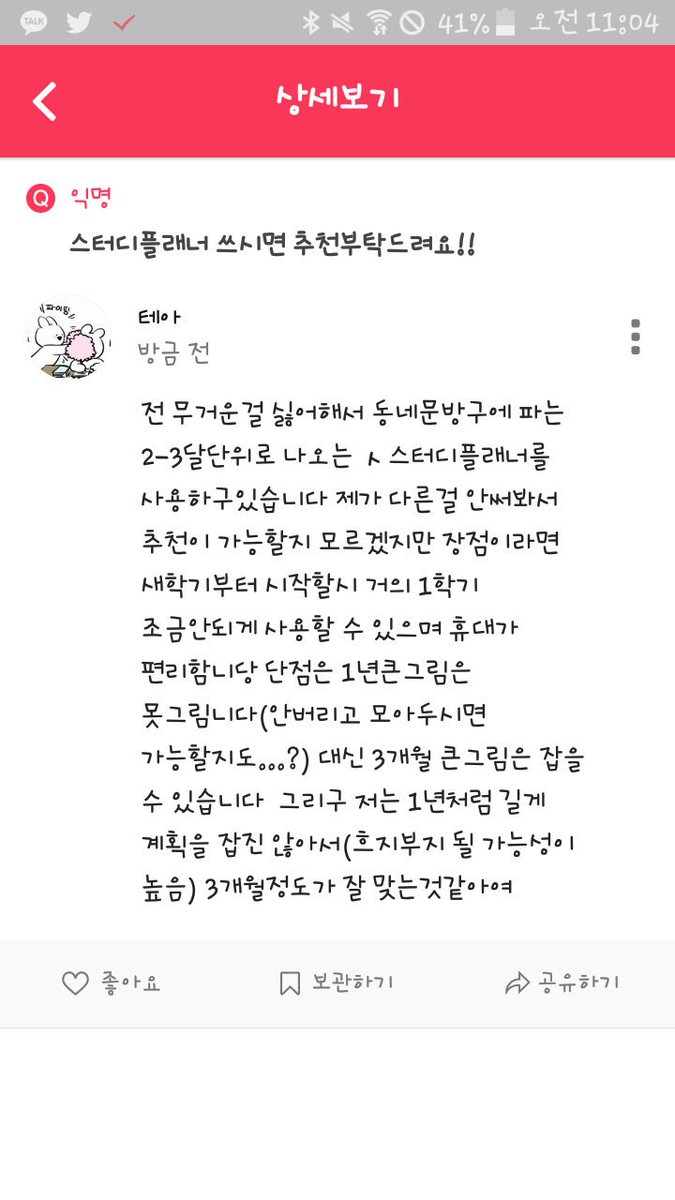 TALK 41% 오전 11:04
상세보기
Q 익명
스터디플래너 쓰시면 추천부탁드려요!!
파이팅
테아
방금 전
전 무거운걸 싫어해서 동네문방구에 파는
2-3달단위로 나오는 ㅅ 스터디플래너를
사용하구있습니다 제가 다른걸 안써봐서
추천이 가능할지 모르겠지만 장점이라면
새학기부터 시작할시 거의 1학기
조금안되게 사용할 수 있으며 휴대가
편리함니당 단점은 1년큰그림은
못그림니다(안버리고 모아두시면
가능할지도...?) 대신 3개월 큰그림은 잡을
수 있습니다 그리구 저는 1년처럼 길게
계획을 잡진 않아서(흐지부지 될 가능성이
높음) 3개월정도가 잘 맞는것같아여
좋아요 보관하기 공유하기